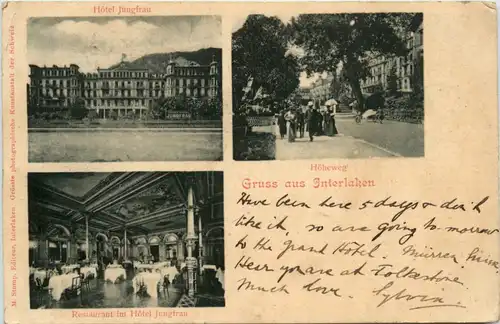 Hôtel Jungfrau
Höheweg
Gruss aus Interlaken
Have been here 5 days & don't
like it, so are going to-morrow
to the Grand Hôtel. Mürren
Hear you are at Folkestone
Much love. Sylvia.
Restaurant im Hôtel Jungfrau
Editeur, Interlaken. Grösste photographische Kunstanstalt der Schweiz.